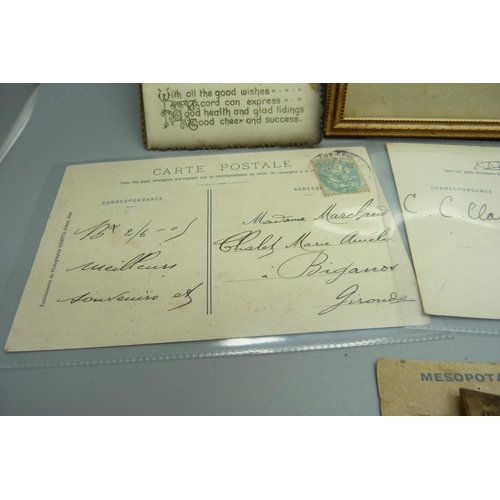 With all the good wishes
A card can express
Good health and glad tidings
Good cheer and success.
CARTE POSTALE
CORRESPONDANCE
ADRESSE
Bx 2/6-05
meilleurs
souvenirs et
Madame Marchand
Chalet Marie Amélie
à Biganos
Gironde
C. C. Cla
MESOPOTA